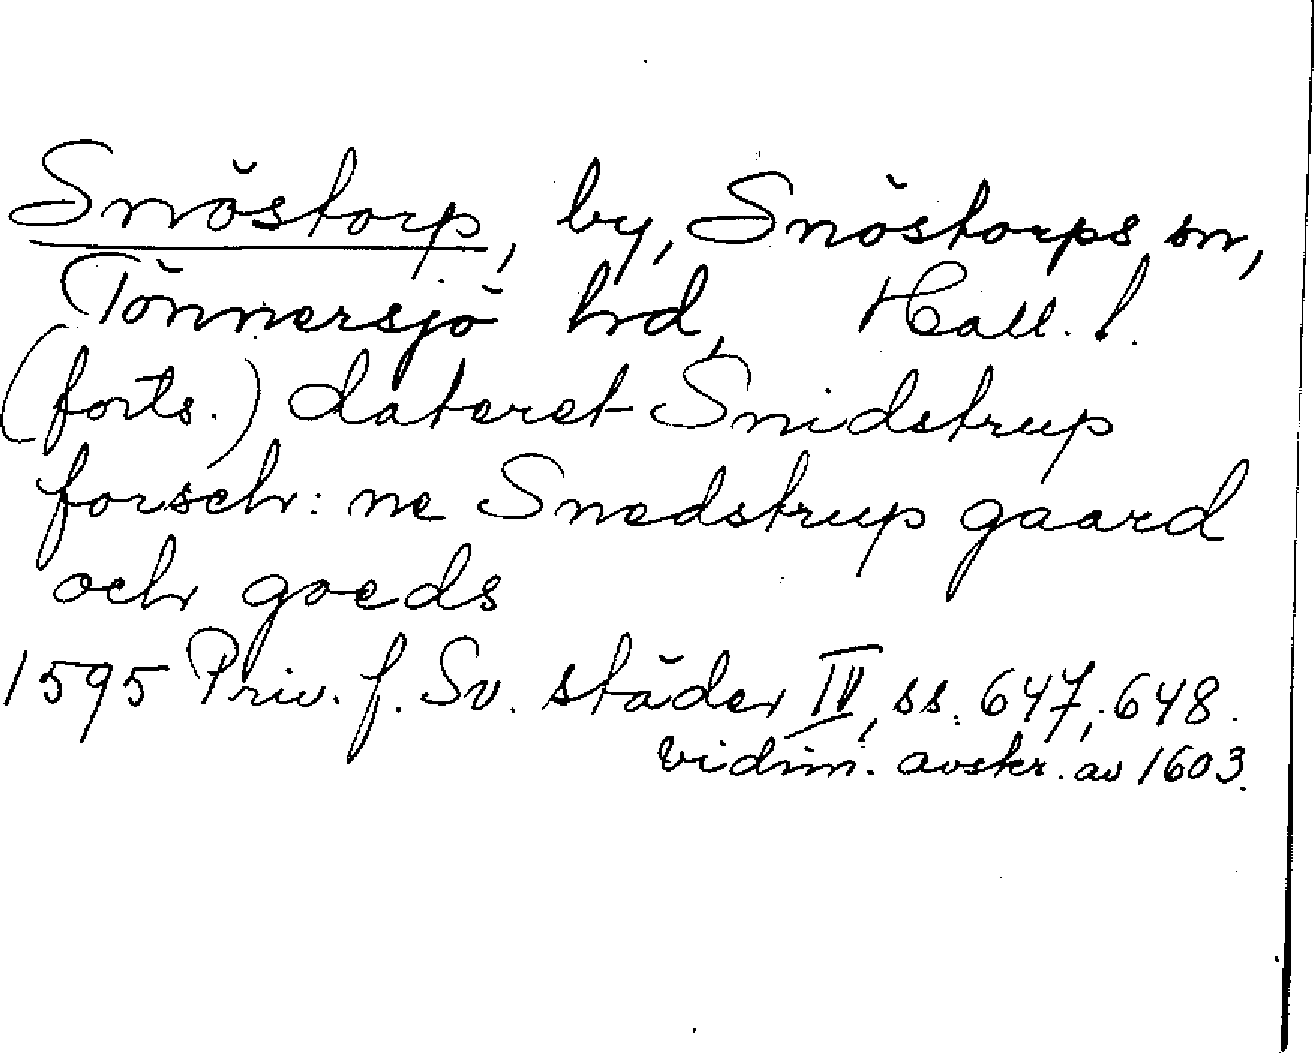 Snöstorp, by, Snöstorps sn,
Tönnersjö hd, Hall. l.
(forts.) dateret Snidstrup
forschr: ne Snedstrup gaard
och goeds
1595 Priv. f. Sv. städer IV, ss. 647, 648.
vidim. avskr. av 1603.